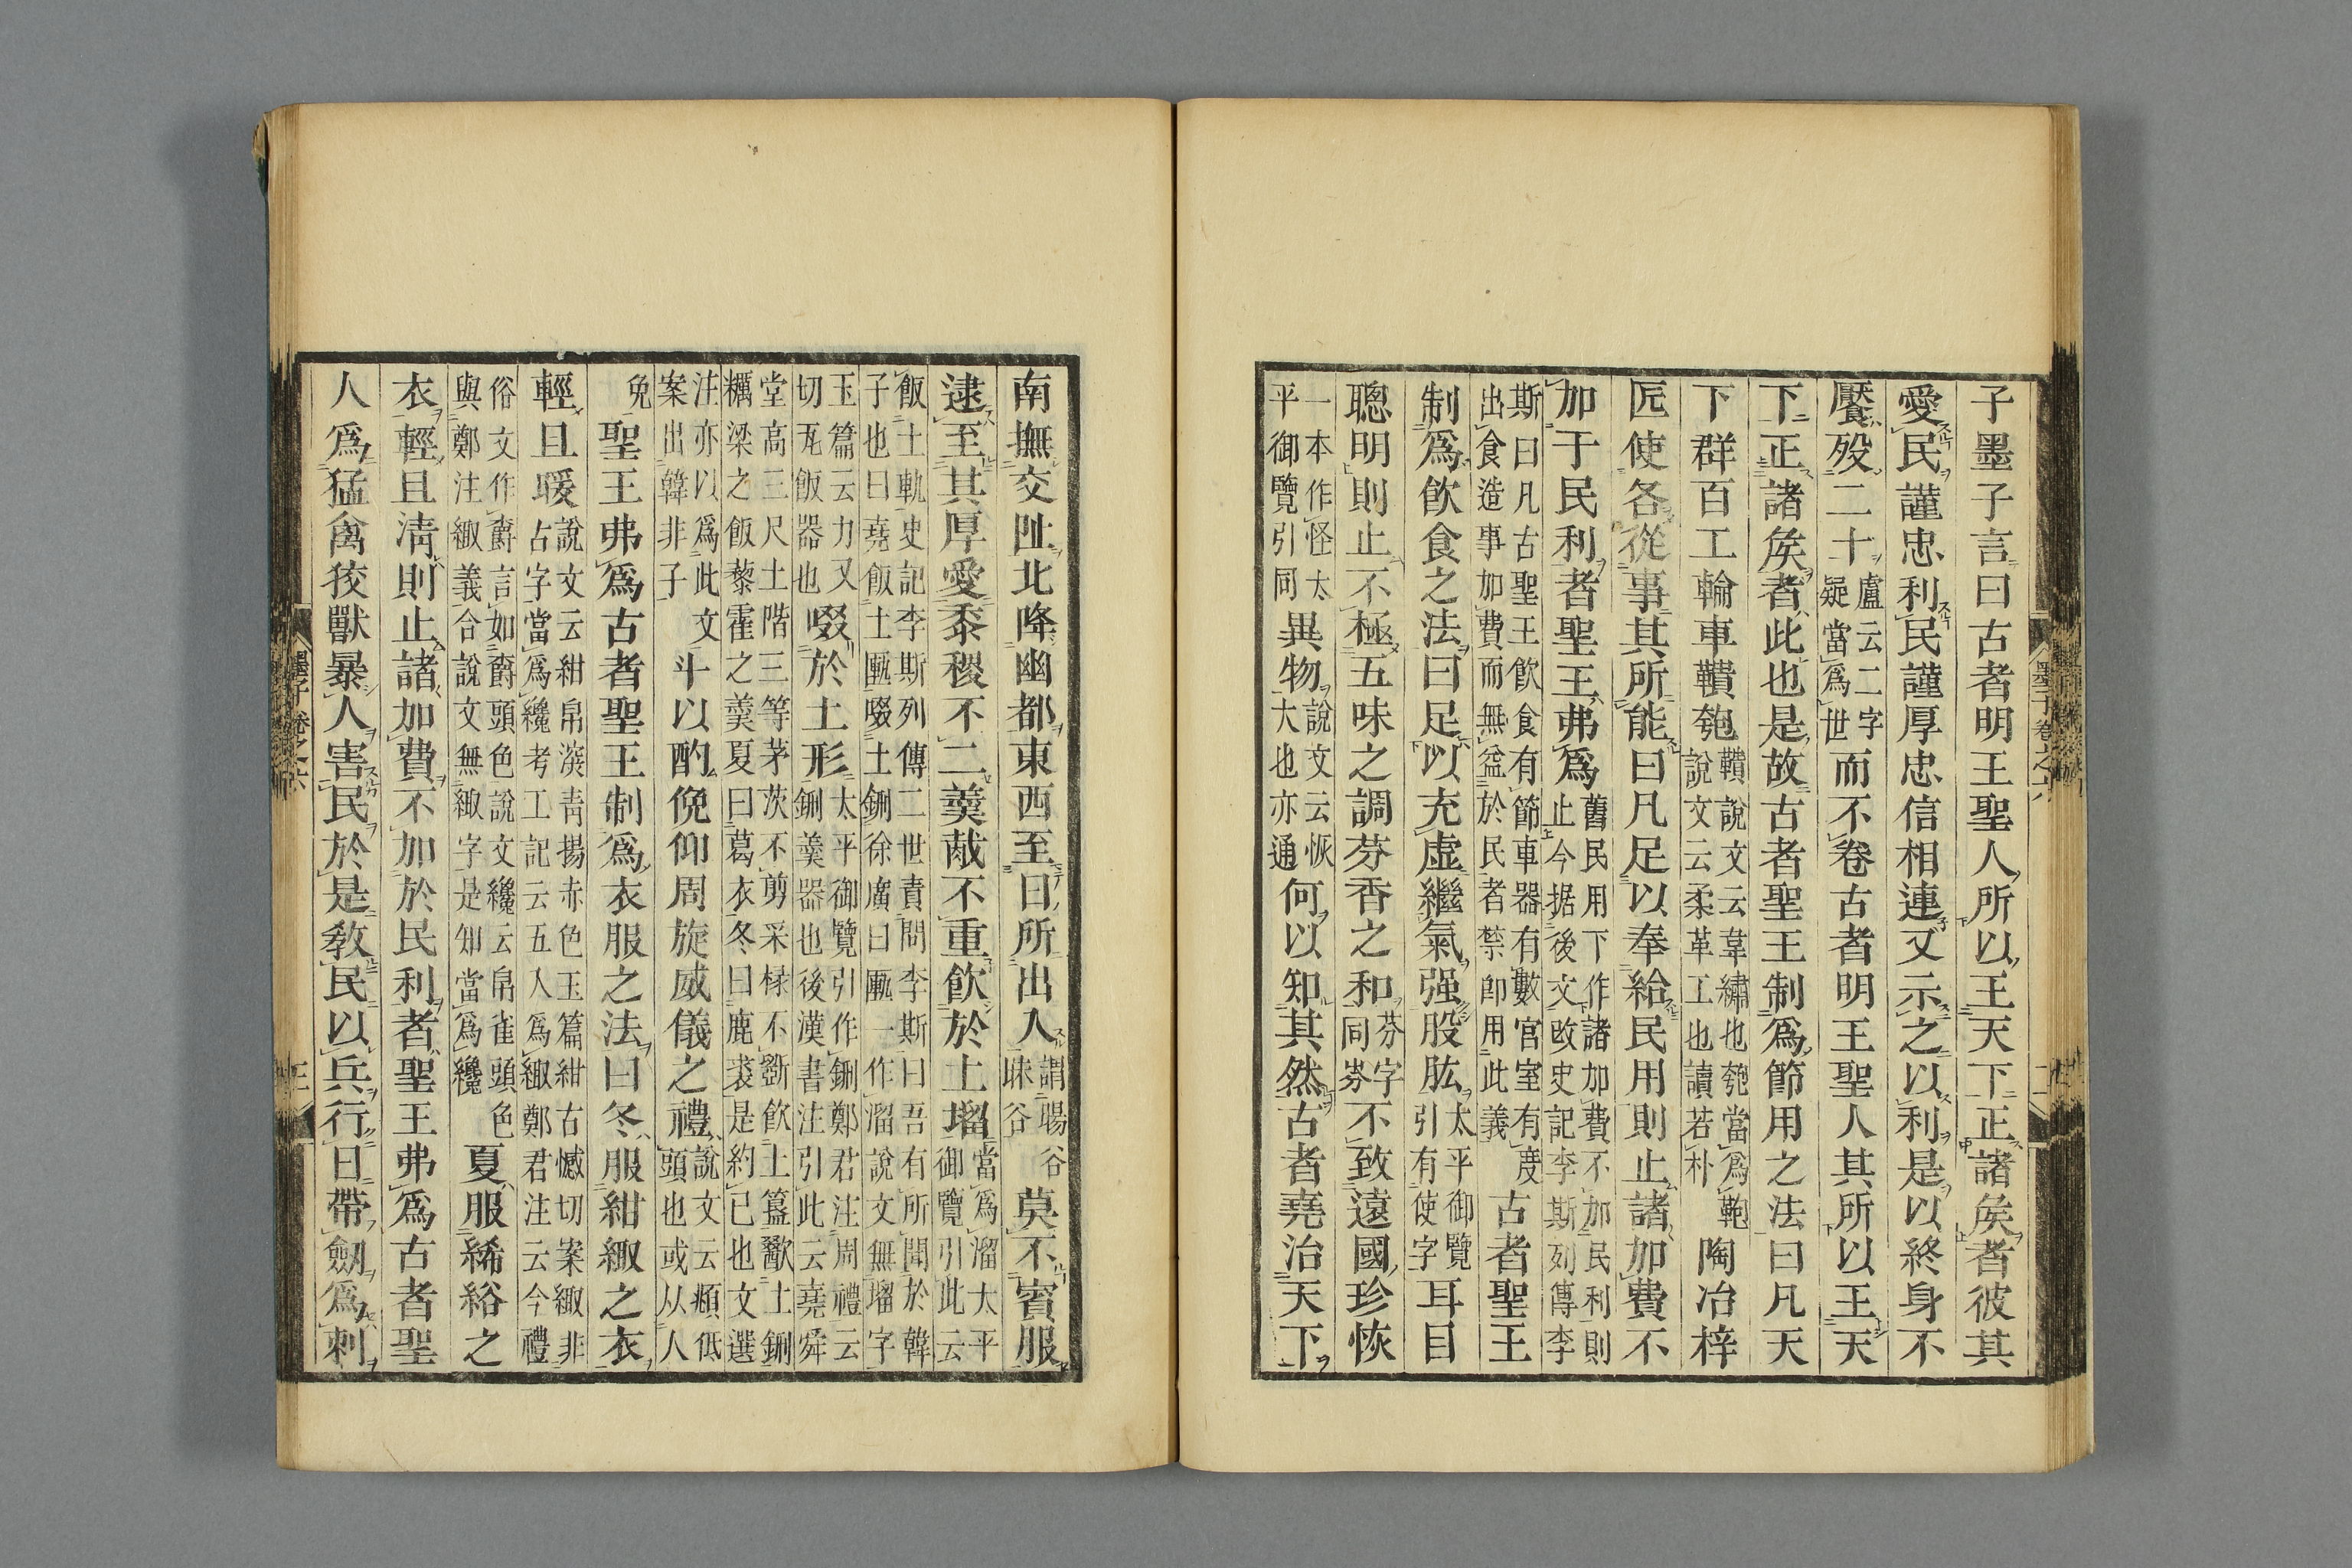 子墨子言曰古者明王聖人所以王天下正諸矦者彼其
愛民謹忠利民謹厚忠信相連又示之以利是以終身不
饜歿二十盧云二字疑當爲世而不卷古者明王聖人其所以王天
下正諸矦者此也是故古者聖王制爲節用之法曰凡天
下群百工輪車鞼匏鞼說文云韋繡也匏當爲鞄說文云柔革工也讀若朴陶冶梓
匠使各從事其所能曰凡足以奉給民用則止諸加費不
加于民利者聖王弗爲舊民用下作諸加費不加民利則止今据後文改史記李斯列傳李
斯曰凡古聖王飲食有節車器有數宮室有度出食造事加費而無益於民者禁卽用此義古者聖王
制爲飲食之法曰足以充虛繼氣强股肱太平御覽引有使字耳目
聰明則止不極五味之調芬香之和芬字同岎不致遠國珍恢
一本作怪太平御覽引同異物說文云恢大也亦通何以知其然古者堯治天下
墨子卷之六
南撫交阯北降幽都東西至日所出入謂暘谷昧谷莫不賓服
逮至其厚愛黍稷不二羹胾不重飲於土塯當爲溜太平御覽引此云
飯土軌史記李斯列傳二世責問李斯曰吾有所聞於韓子也曰堯飯土匭啜土鉶徐廣曰匭一作溜說文無塯字
玉篇云力又切瓦飯器也啜於土形太平御覽引作鉶鄭君注周禮云鉶羹器也後漢書注引此云堯舜
堂高三尺土階三等茅茨不剪采椽不斲飲土簋歠土鉶糲粱之飯藜霍之羹夏曰葛衣冬曰鹿裘是約已也文選
注亦以爲此文案出韓非子斗以酌俛仰周旋威儀之禮說文云頫低頭也或从人
免聖王弗爲古者聖王制爲衣服之法曰冬服紺緅之衣
輕且暖說文云紺帛滾靑揚赤色玉篇紺古憾切案緅非占字當爲纔考工記云五入爲緅鄭君注云今禮
俗文作爵言如爵頭色說文纔云帛雀頭色與鄭注緅義合說文無緅字是知當爲纔夏服絺綌之
衣輕且凊則止諸加費不加於民利者聖王弗爲古者聖
人爲猛禽狡獸暴人害民於是敎民以兵行曰帶劔爲刺
墨子卷之六